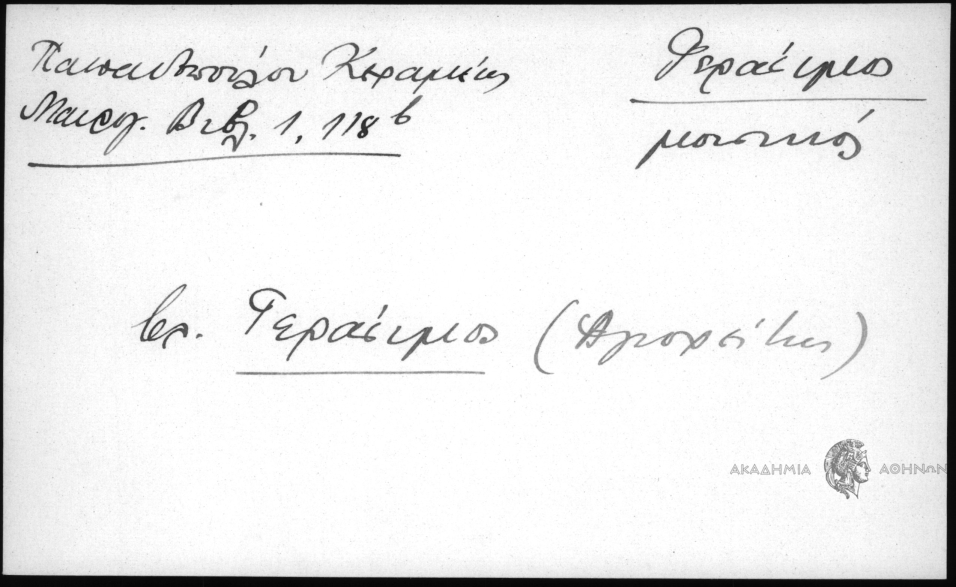 Παπαδοπούλου Κεραμέως
Μαυρογ. Βιβλ. 1, 118β
Γεράσιμος
μουσικός
βλ. Γεράσιμος (Ἁγιορείτης)
ΑΚΑΔΗΜΙΑ ΑΘΗΝΩΝ